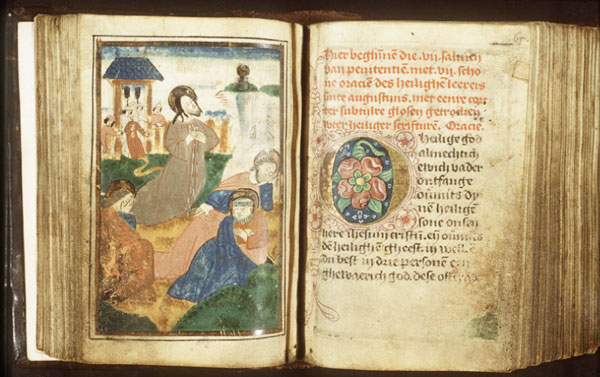 Hier beghinnē die .vij. salmen
van penitentien. met .vij. scho
ne oraciēn des heilighē leerers
sinte augustijns. met eenre cor
ter subtijlre glosen getrocken
wter heiliger scrifturē. Oracie.
Heilige god
almechtich
ewich vader
ontfange
ouermits dy
nē heilighē
sone onsen
here iħesum cristū. eñ ouermits
dē heilighē gheest. in welkē
du best in drie personē een
ghewaerich god. dese